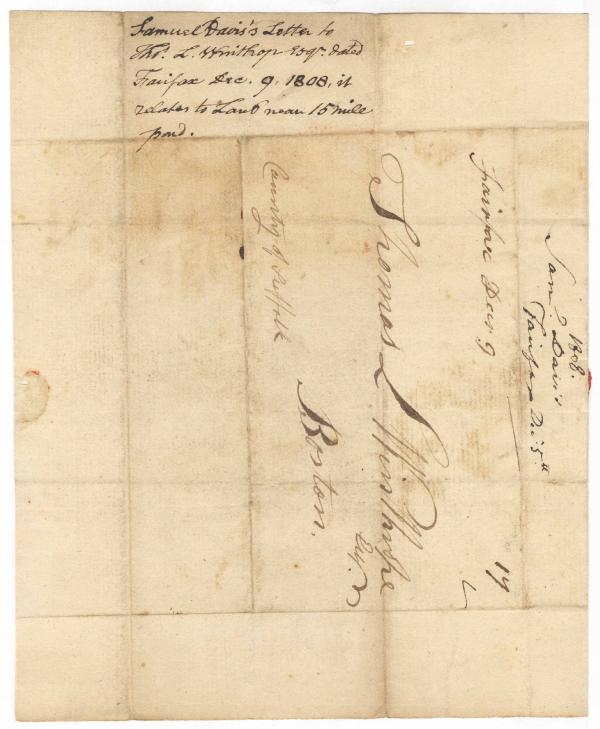 Samuel Davis's Letter to
Tho.s L. Winthrop Esqr. dated
Fairfax Dec. 9. 1808, it
relates to Land near 15 mile
pond.
Fairfax Decr. 9
17
Thomas L Winthrope
Esq.
Boston.
County of Suffolk
1808.
Sam.l Davis
Fairfax Dec. 5th